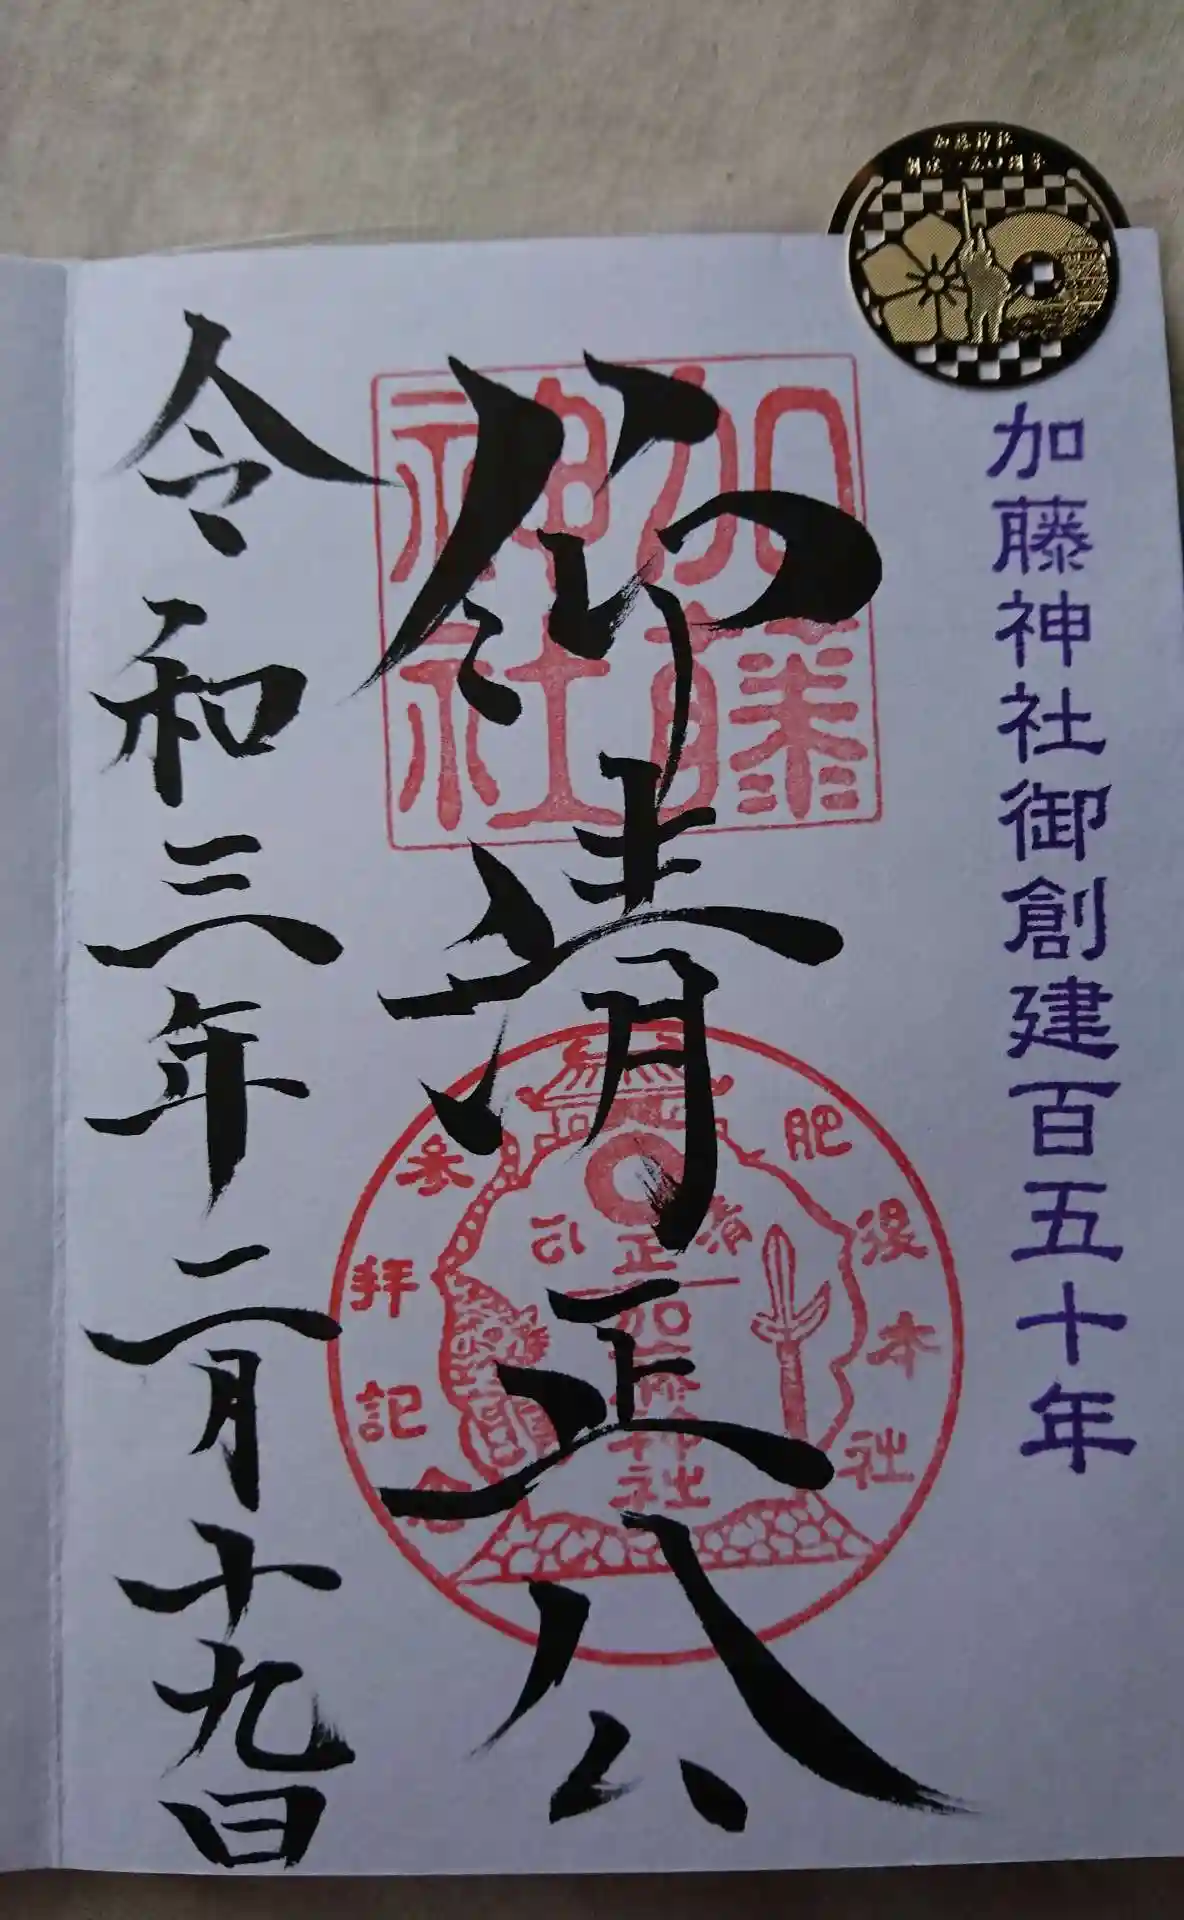 加藤神社
創建一五〇周年
加藤神社御創建百五十年
仰清正公
加藤
神社
肥後本社
清正公
加藤神社
参拝記念
令和三年二月十九日